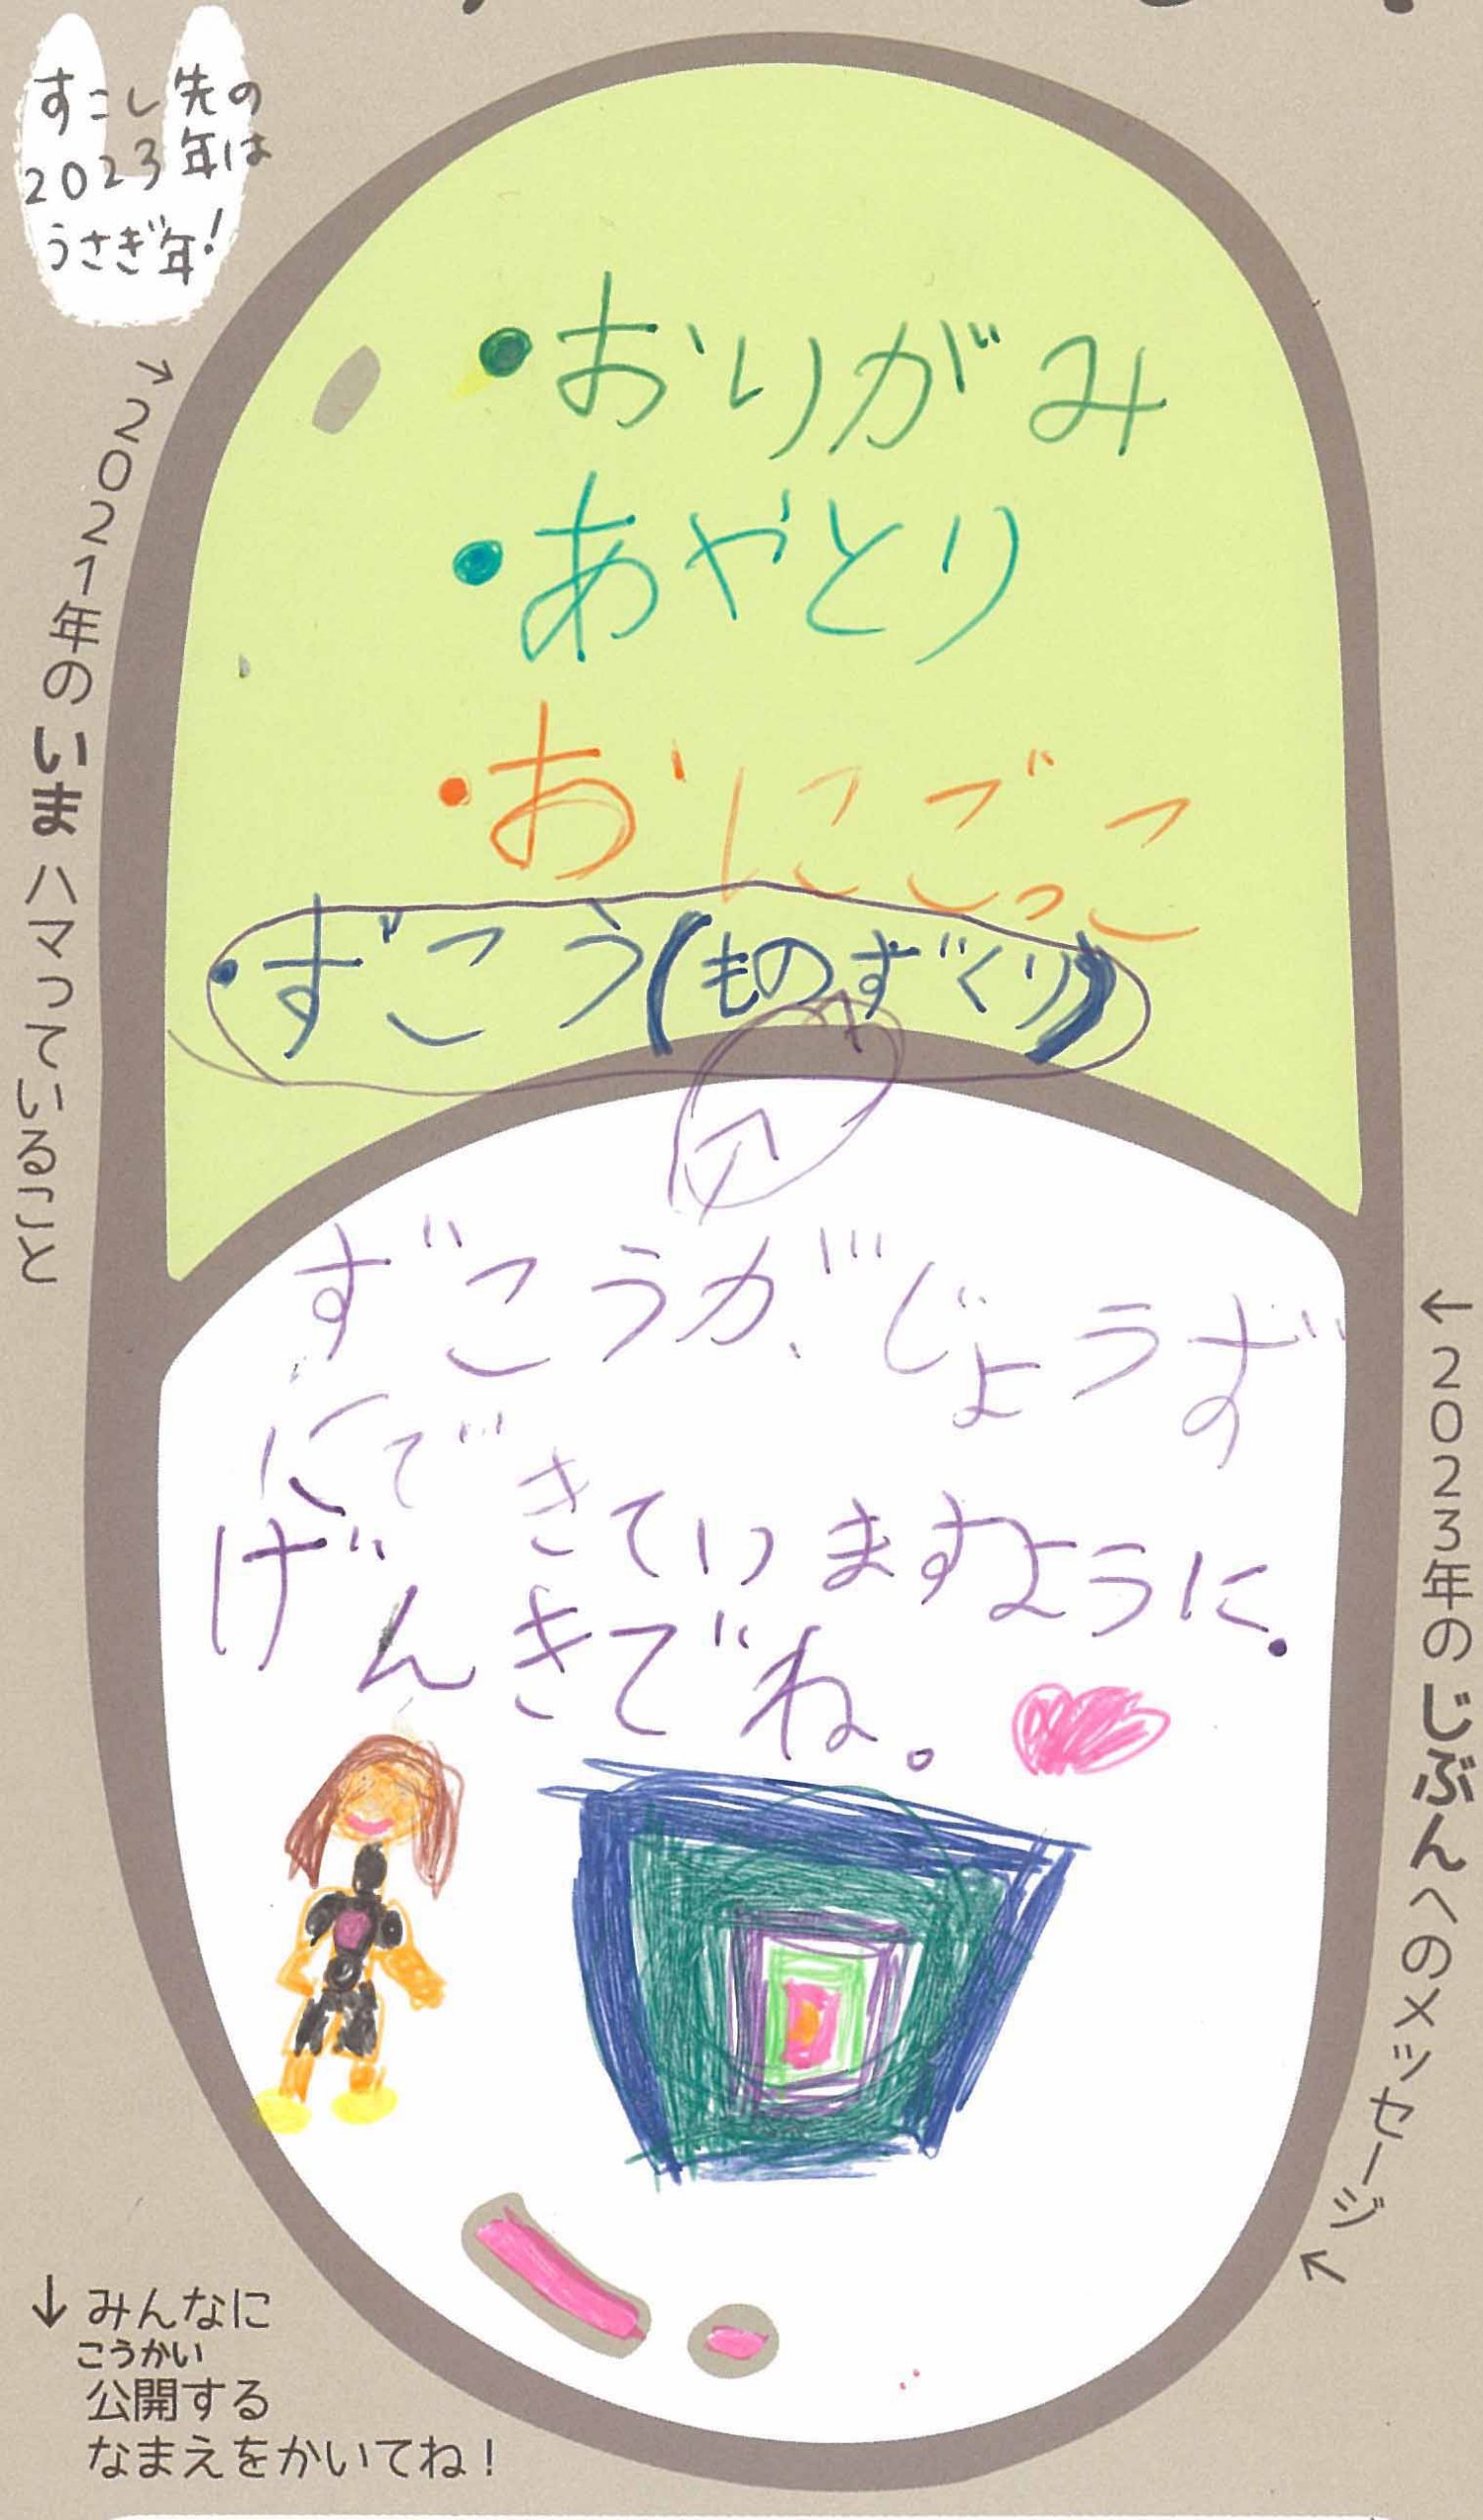 すこし先の
2023年は
うさぎ年!
→2021年のいまハマっていること
・おりがみ
・あやとり
・おにごっこ
・ずこう(ものずくり)
ずこうが、じょうず
にできていますように.
げんきでね。
←2023年のじぶんへのメッセージ←
↓みんなに
こうかい
公開する
なまえをかいてね!